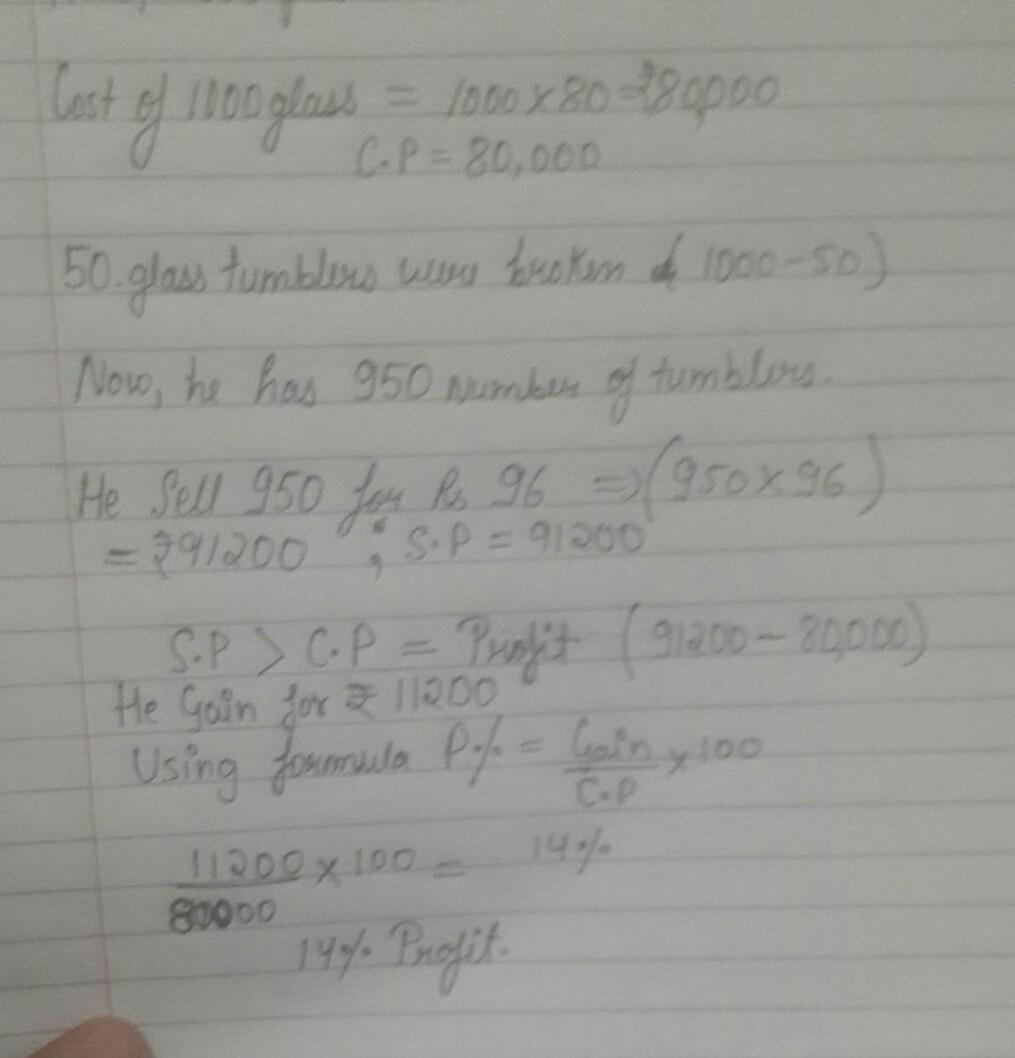 Cost of 1000 glass = 1000 x 80 = ₹80,000
C.P = 80,000
50 glass tumblers were broken ( 1000 - 50 )
Now, he has 950 number of tumblers.
He Sell 950 for Rs 96 => (950 x 96)
= ₹91200 ; S.P = 91200
S.P > C.P = Profit (91200 - 80,000)
He Gain for ₹ 11200
Using formula P.% = Gain/C.P x 100
11200/80000 x 100 = 14%
14% Profit.